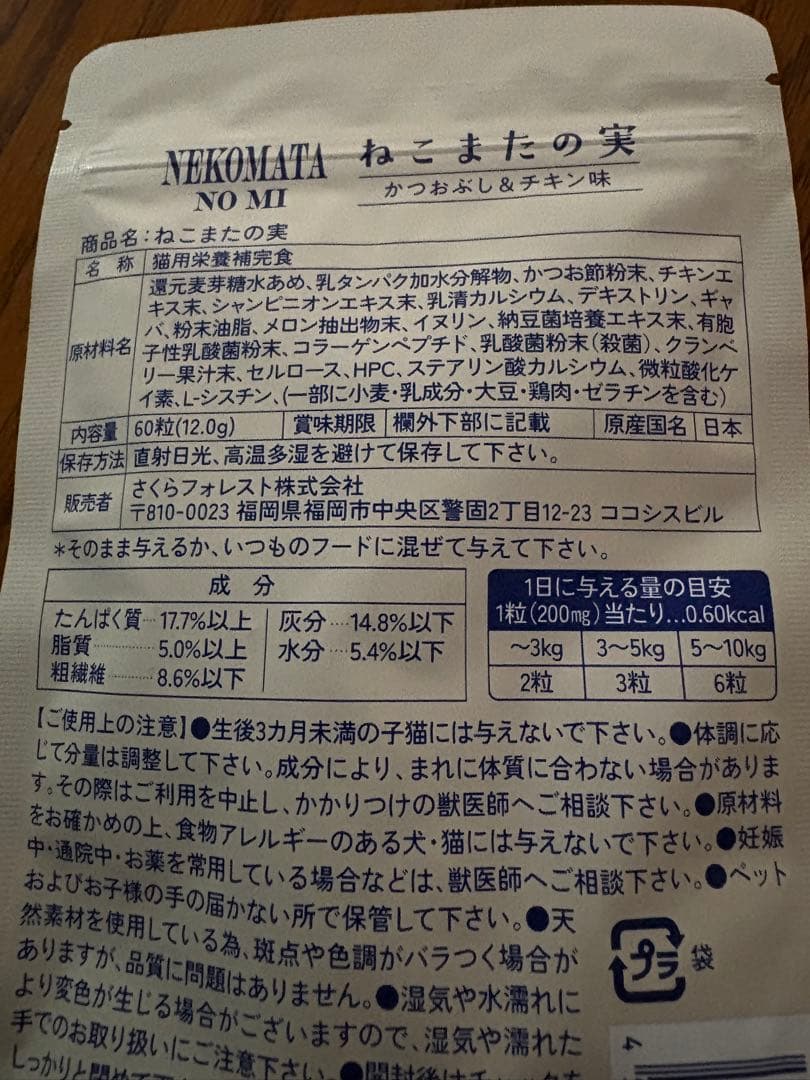 NEKOMATA
NO MI
ねこまたの実
かつおぶし&チキン味
商品名:ねこまたの実
名 称 猫用栄養補完食
原材料名
還元麦芽糖水あめ、乳タンパク加水分解物、かつお節粉末、チキンエ
キス末、シャンピニオンエキス末、乳清カルシウム、デキストリン、ギャ
バ、粉末油脂、メロン抽出物末、イヌリン、納豆菌培養エキス末、有胞
子性乳酸菌粉末、コラーゲンペプチド、乳酸菌粉末(殺菌)、クランベ
リー果汁末、セルロース、HPC、ステアリン酸カルシウム、微粒酸化ケ
イ素、L-シスチン、(一部に小麦・乳成分・大豆・鶏肉・ゼラチンを含む)
内容量 60粒(12.0g) 賞味期限 欄外下部に記載 原産国名 日本
保存方法 直射日光、高温多湿を避けて保存して下さい。
販売者
さくらフォレスト株式会社
〒810-0023 福岡県福岡市中央区警固2丁目12-23 ココシスビル
*そのまま与えるか、いつものフードに混ぜて与えて下さい。
成 分
たんぱく質…17.7%以上 灰分……14.8%以下
脂質……………5.0%以上 水分……5.4%以下
粗繊維…………8.6%以下
1日に与える量の目安
1粒(200mg)当たり…0.60kcal
~3kg 3~5kg 5~10kg
2粒 3粒 6粒
【ご使用上の注意】●生後3カ月未満の子猫には与えないで下さい。●体調に応
じて分量は調整して下さい。成分により、まれに体質に合わない場合がありま
す。その際はご利用を中止し、かかりつけの獣医師へご相談下さい。●原材料
をお確かめの上、食物アレルギーのある犬・猫には与えないで下さい。●妊娠
中・通院中・お薬を常用している場合などは、獣医師へご相談下さい。●ペット
およびお子様の手の届かない所で保管して下さい。●天
然素材を使用している為、斑点や色調がバラつく場合が
ありますが、品質に問題はありません。●湿気や水濡れに
より変色が生じる場合がございますので、湿気や濡れた
手でのお取り扱いにご注意下さい。●開封後はチャックを
しっかりと閉めて
プラ
袋
4